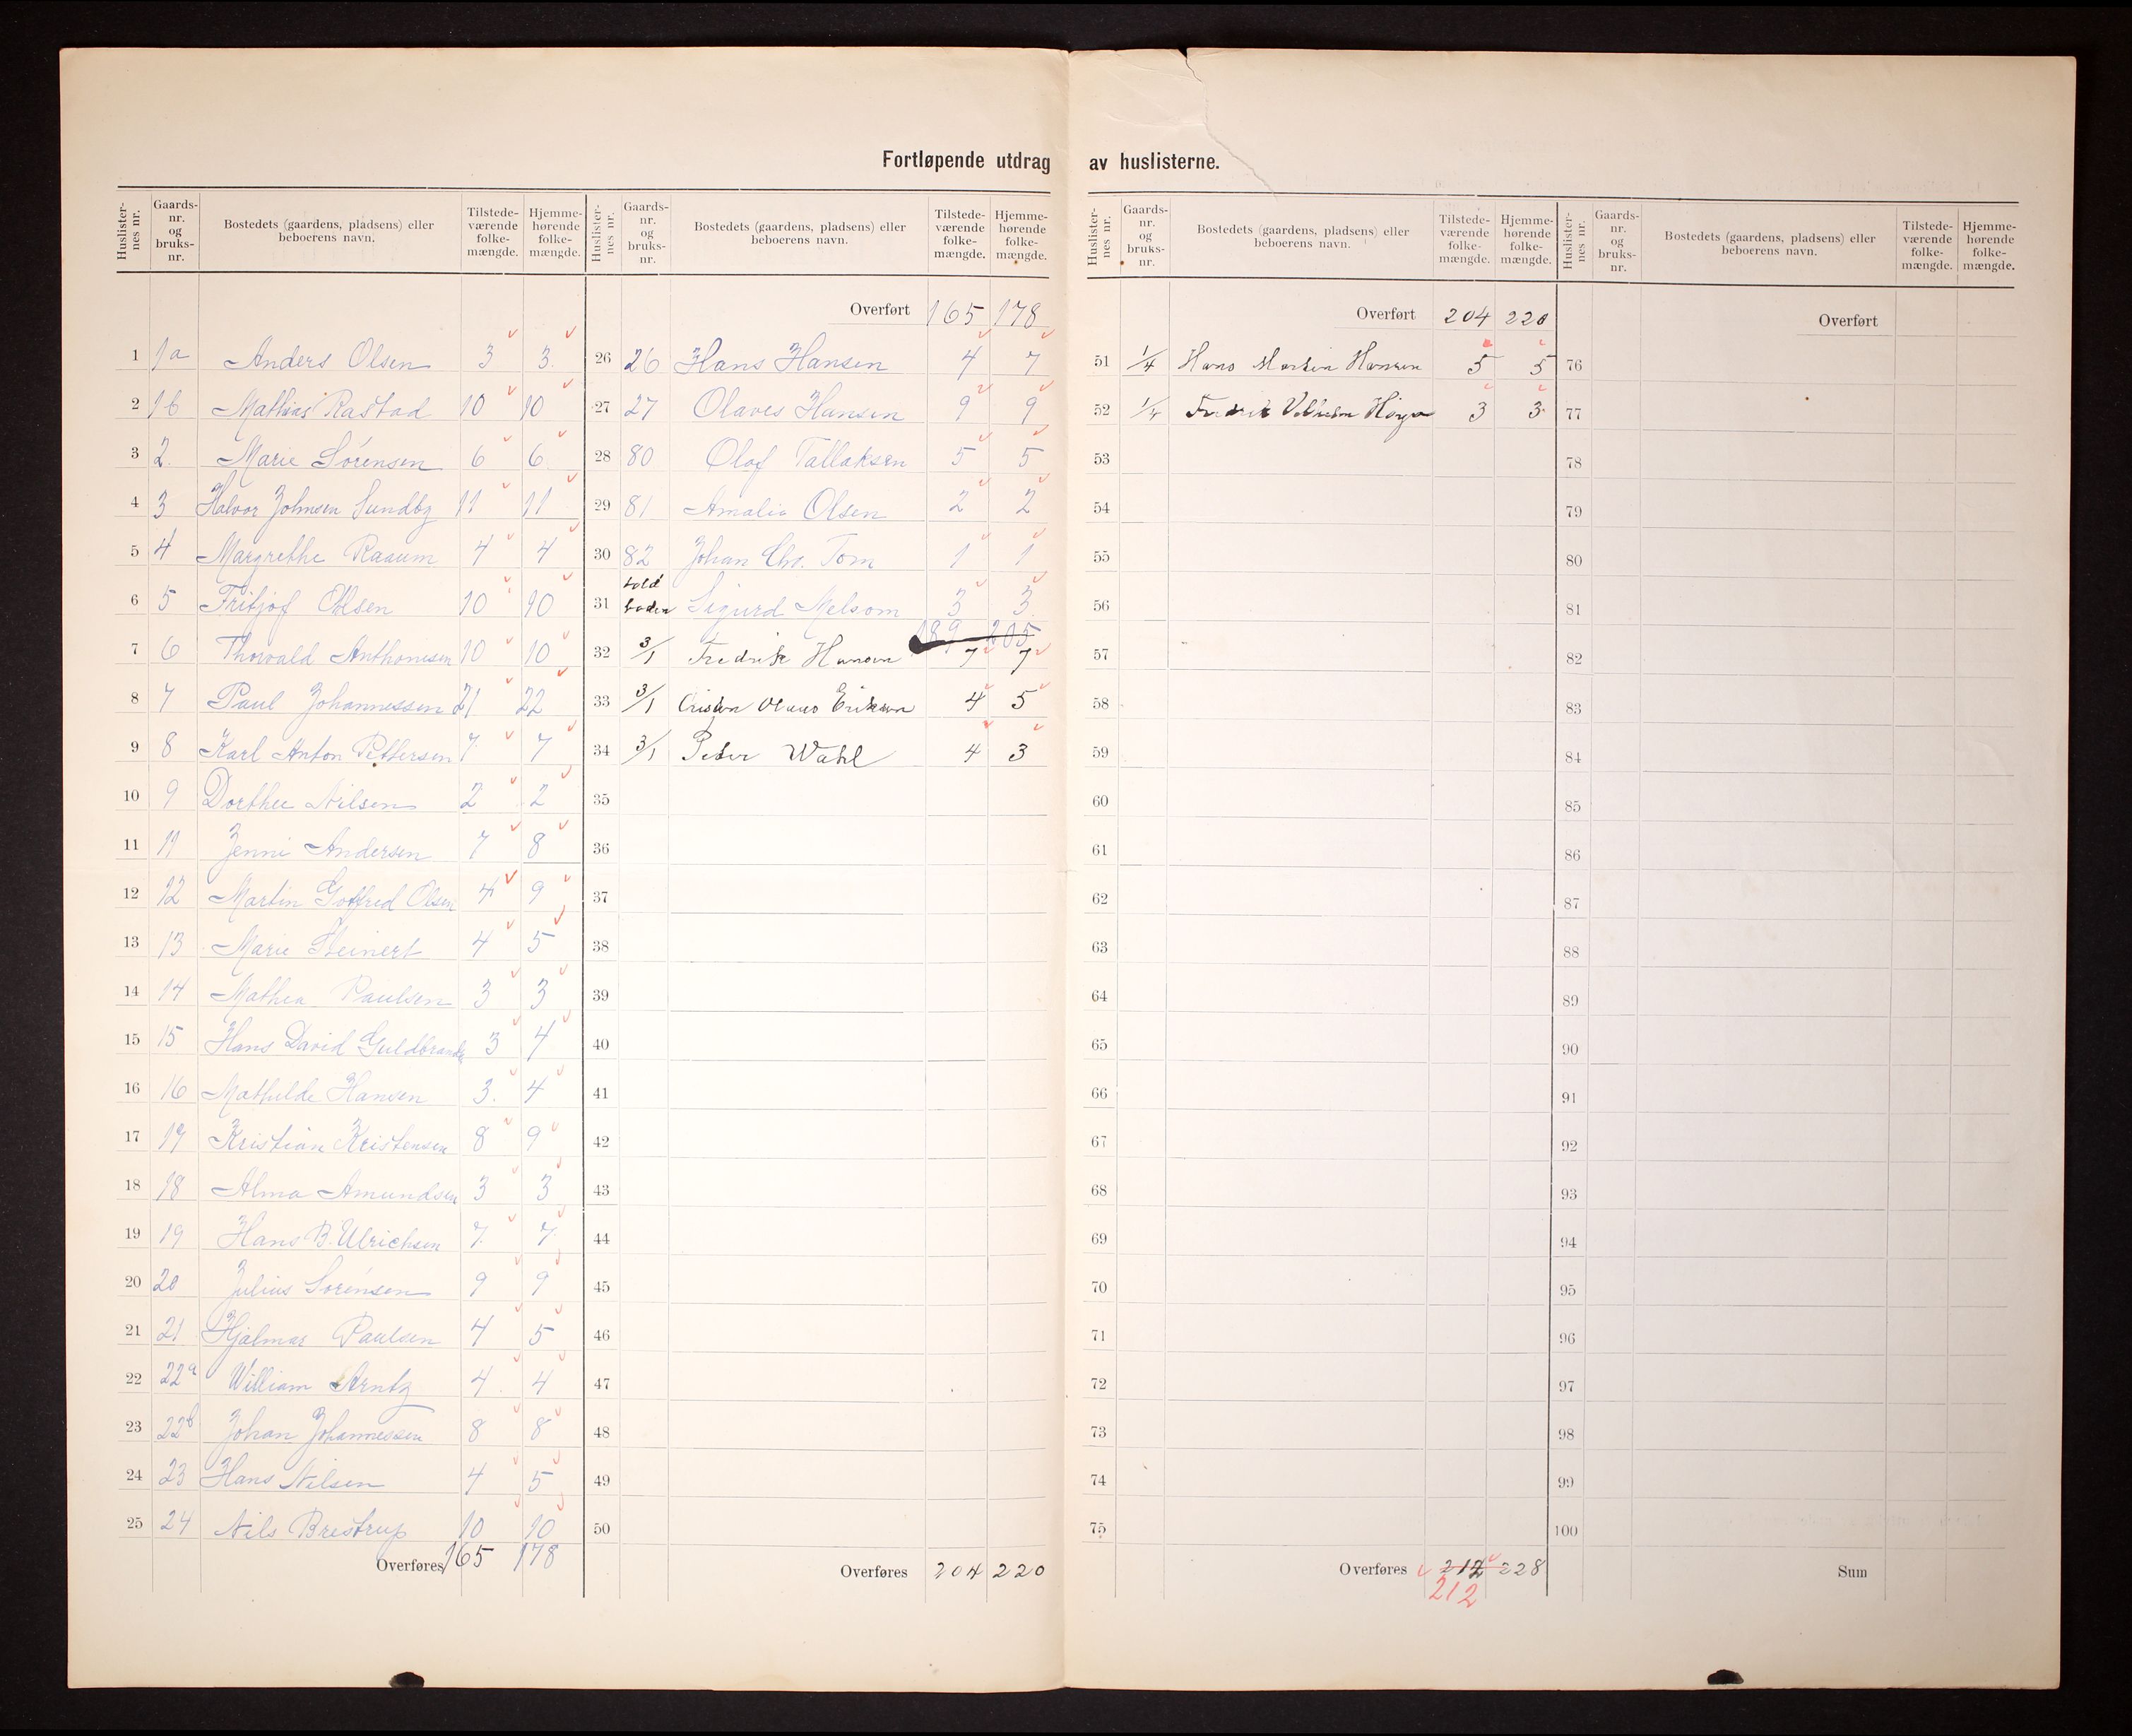 Fortløpende utdrag av huslisterne.
Huslister-nes nr. Gaards-nr. og bruks-nr. Bostedets (gaardens, pladsens) eller beboerens navn. Tilstede-værende folke-mængde. Hjemme-hørende folke-mængde.
1 1a Anders Olsen 3 3
2 1b Mathias Rastad 10 10
3 2 Marie Sörensen 6 6
4 3 Halvor Johnsen Sundby 11 11
5 4 Margrethe Raaum 4 4
6 5 Fritjof Olsen 10 10
7 6 Thorvald Anthonisen 10 10
8 7 Paul Johannessen 21 22
9 8 Karl Anton Pettersen 7 7
10 9 Dorthee Nilsen 2 2
11 11 Jenni Andersen 7 8
12 12 Martin Gotfred Olsen 4 9
13 13 Marie Steinert 4 5
14 14 Mathea Paulsen 3 3
15 15 Hans David Guldbrands 3 4
16 16 Mathilde Hansen 3. 4
17 17 Kristian Kristensen 8 9
18 18 Alma Amundsen 3 3
19 19 Hans B. Ulrichsen 7. 7.
20 20 Julius Sorensen 9 9
21 21 Hjalmar Paulsen 4 5
22 22a William Arntz 4 4
23 22b Johan Johannessen 8 8
24 23 Hans Nilsen 4 5
25 24 Nils Brestrup 10 10
Overføres 165 178
Huslister-nes nr. Gaards-nr. og bruks-nr. Bostedets (gaardens, pladsens) eller beboerens navn. Tilstede-værende folke-mængde. Hjemme-hørende folke-mængde.
Overført 165 178
26 26 Hans Hansen 4 7
27 27 Olaves Hansen 9 9
28 80 Olaf Tallaksen 5 5
29 81 Amalia Olsen 2 2
30 82 Johan Chr. Tom 1 1
31 told boden Sigurd Melsom 3 3
189 205
32 3/1 Fredrik Hansen 7 7
33 3/1 Olaus Eriksen 4 5
34 3/1 Peder Wahl 4 3
35
36
37
38
39
40
41
42
43
44
45
46
47
48
49
50
Overføres 204 220
Huslister-nes nr. Gaards-nr. og bruks-nr. Bostedets (gaardens, pladsens) eller beboerens navn. Tilstede-værende folke-mængde. Hjemme-hørende folke-mængde.
Overført 204 220
51 1/4 Hans Martin Hansen 5 5
52 1/4 Fredrik 3 3
53
54
55
56
57
58
59
60
61
62
63
64
65
66
67
68
69
70
71
72
73
74
75
Overføres 212 228
212
Huslister-nes nr. Gaards-nr. og bruks-nr. Bostedets (gaardens, pladsens) eller beboerens navn. Tilstede-værende folke-mængde. Hjemme-hørende folke-mængde.
Overført
76
77
78
79
80
81
82
83
84
85
86
87
88
89
90
91
92
93
94
95
96
97
98
99
100
Sum